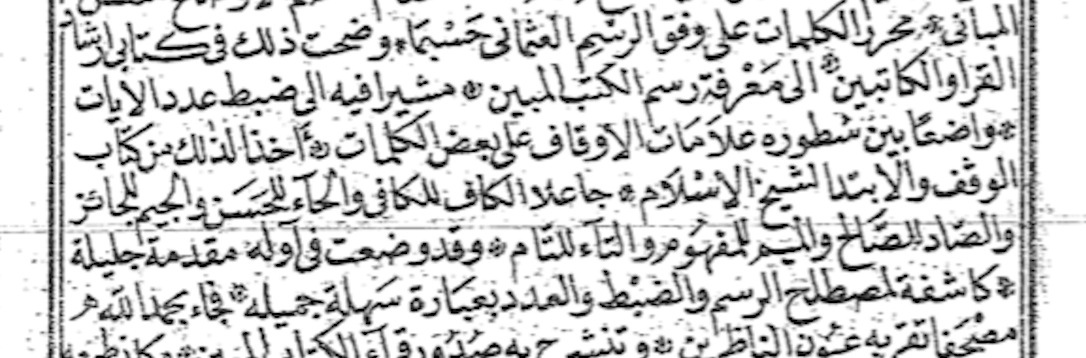 المبانى * محرر الكلمات على وفق الرسم العثمانى حسبما * وضحت ذلك فى كتابى ارشاد
القرا والكاتبين * الى معرفة رسم الكتب المبين * مشيرا فيه الى ضبط عدد الايات
* واضعا بين سطوره علامات الاوقاف على بعض الكلمات * آخذا لذلك من كتاب
الوقف والابتدا لشيخ الاسلام * جاعلا الكاف للكافى والحآء للحسن والجيم للجائز
والصاد للصالح والميم للمفهوم والتآء للتام * وقد وضعت فى اوله مقدمة جليلة
* كاشفة لمصطلح الرسم والضبط والعدد بعبارة سهلة جميله * فجاء بحمد الله
مصحفا تقر به عيون الناظرين * وتنشرح به صدور قرآء الكتاب المبين *